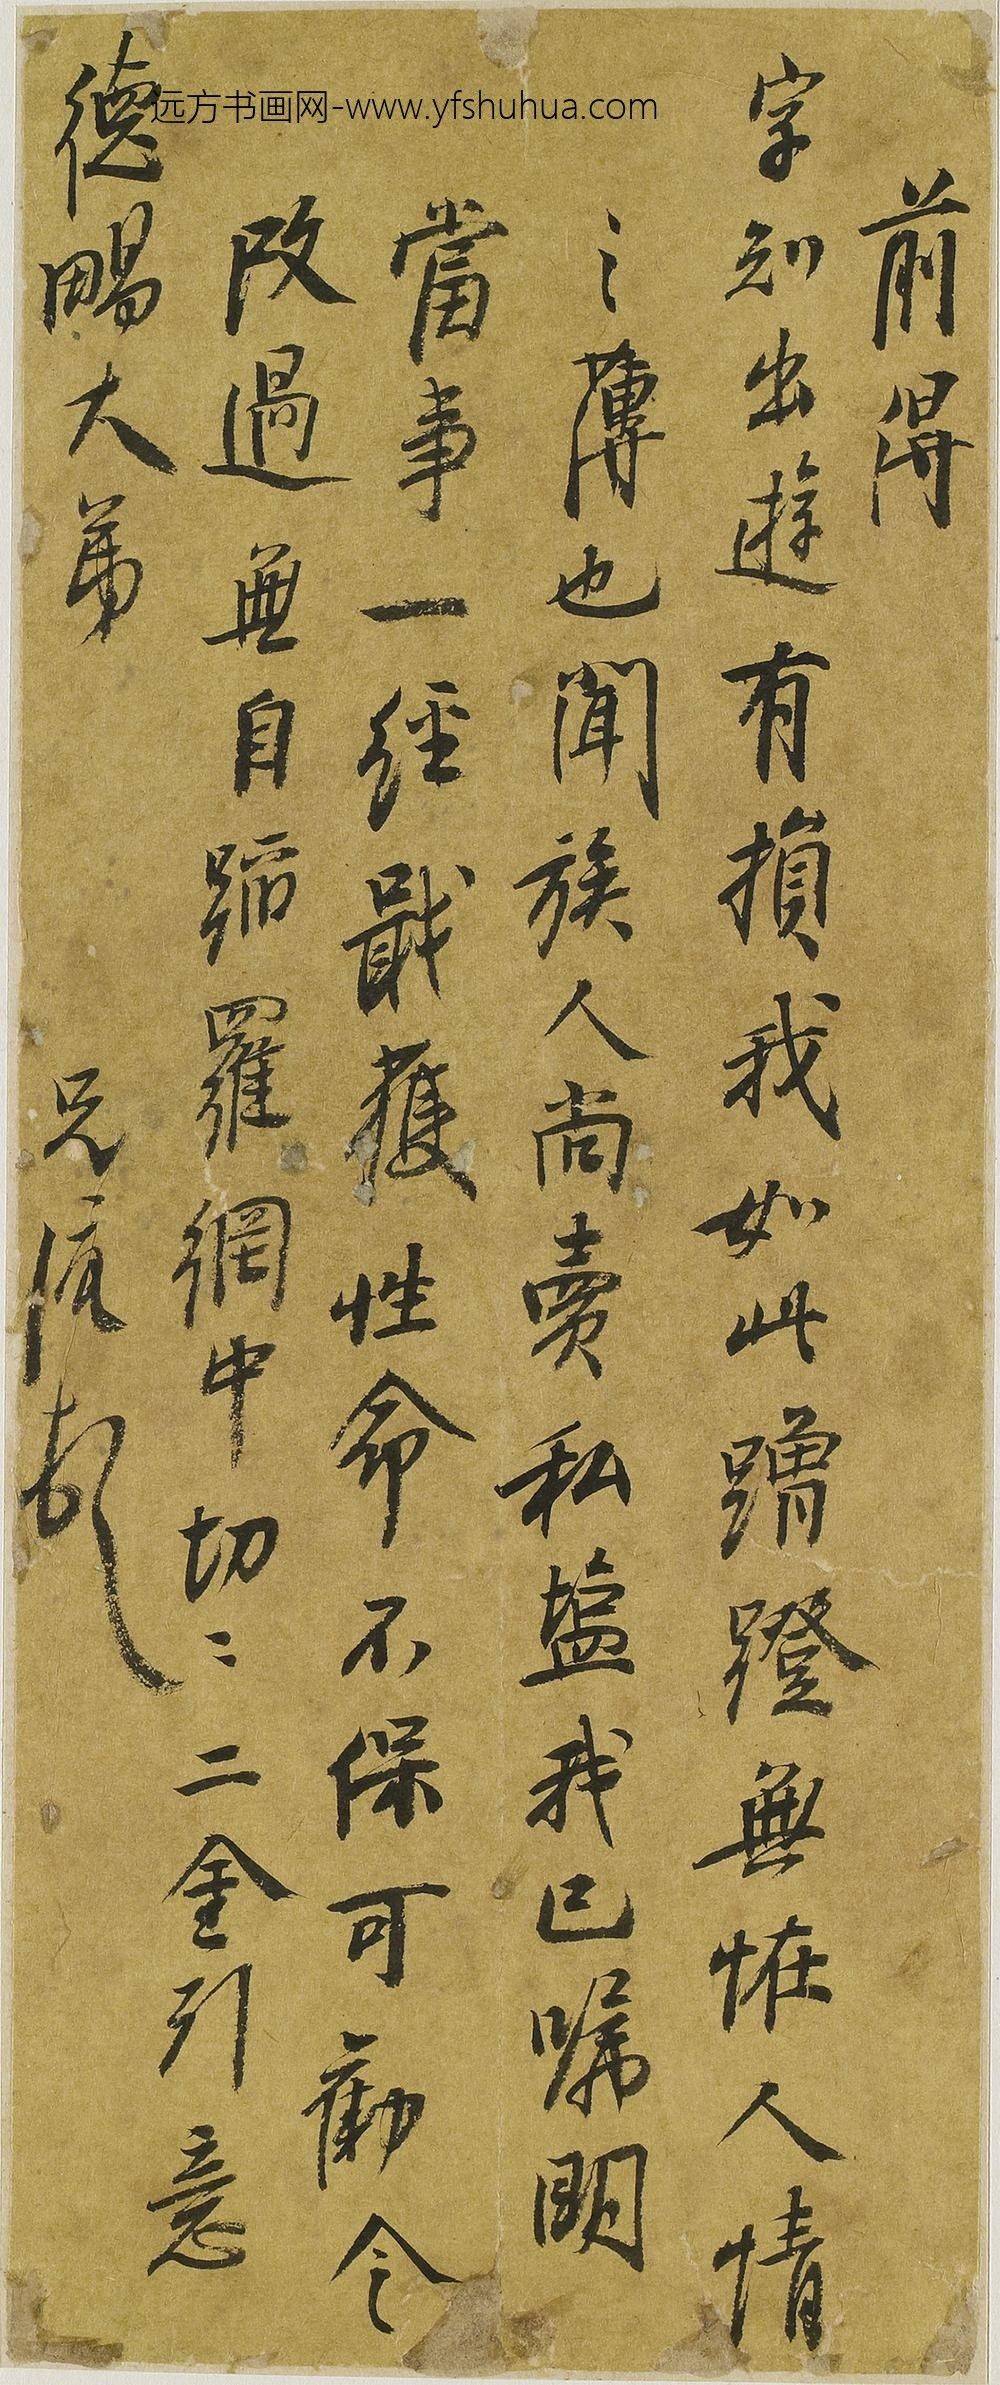 远方书画网-www.yfshuhua.com
前得
字知出遊有損我如此蹭蹬無恠人情
之薄也聞族人尚賣私塩我已嘱明
當事一經戢獲性命不保可勸令
改過無自蹈羅網中切〻二金引意
德暘大弟
兄